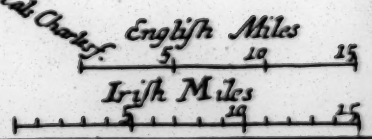 English Miles
5 10 15
Irish Miles
5 10 15